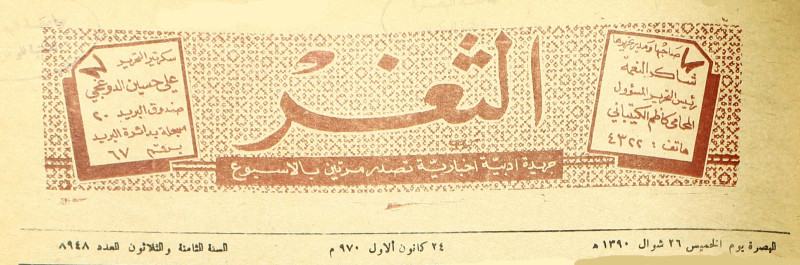 الثغر
صاحبها ومدير تحريرها
شاكر النعمة
رئيس التحرير المسؤول
المحامي كاظم الكيتباني
هاتف : ٤٣٢٢
سكرتير التحرير
علي حسين الدوغجي
صندوق البريد ٢٠
مسجلة بدائرة البريد
برقم ٦٧
جريدة ادبية اخبارية تصدر مرتين بالاسبوع
البصرة يوم الخميس ٢٦ شوال ١٣٩٠ هـ
٢٤ كانون ألاول ٩٧٠ م
السنة الثامنة والثلاثون العدد ٨٩٤٨